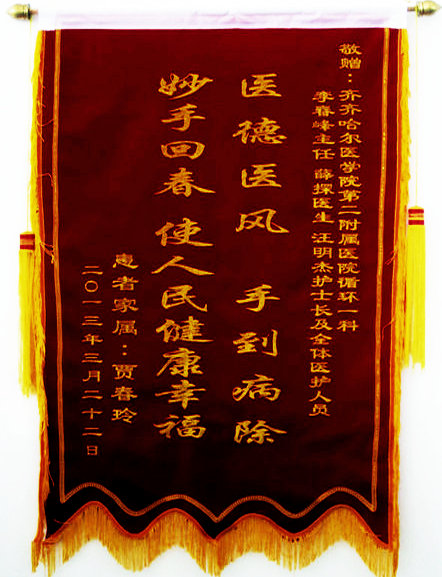 敬赠：齐齐哈尔医学院第二附属医院循环一科
李春峰主任 薛探医生 汪明杰护士长及全体医护人员
医德医风 手到病除
妙手回春 使人民健康幸福
患者家属：贾春玲
二〇一三年三月二十二日